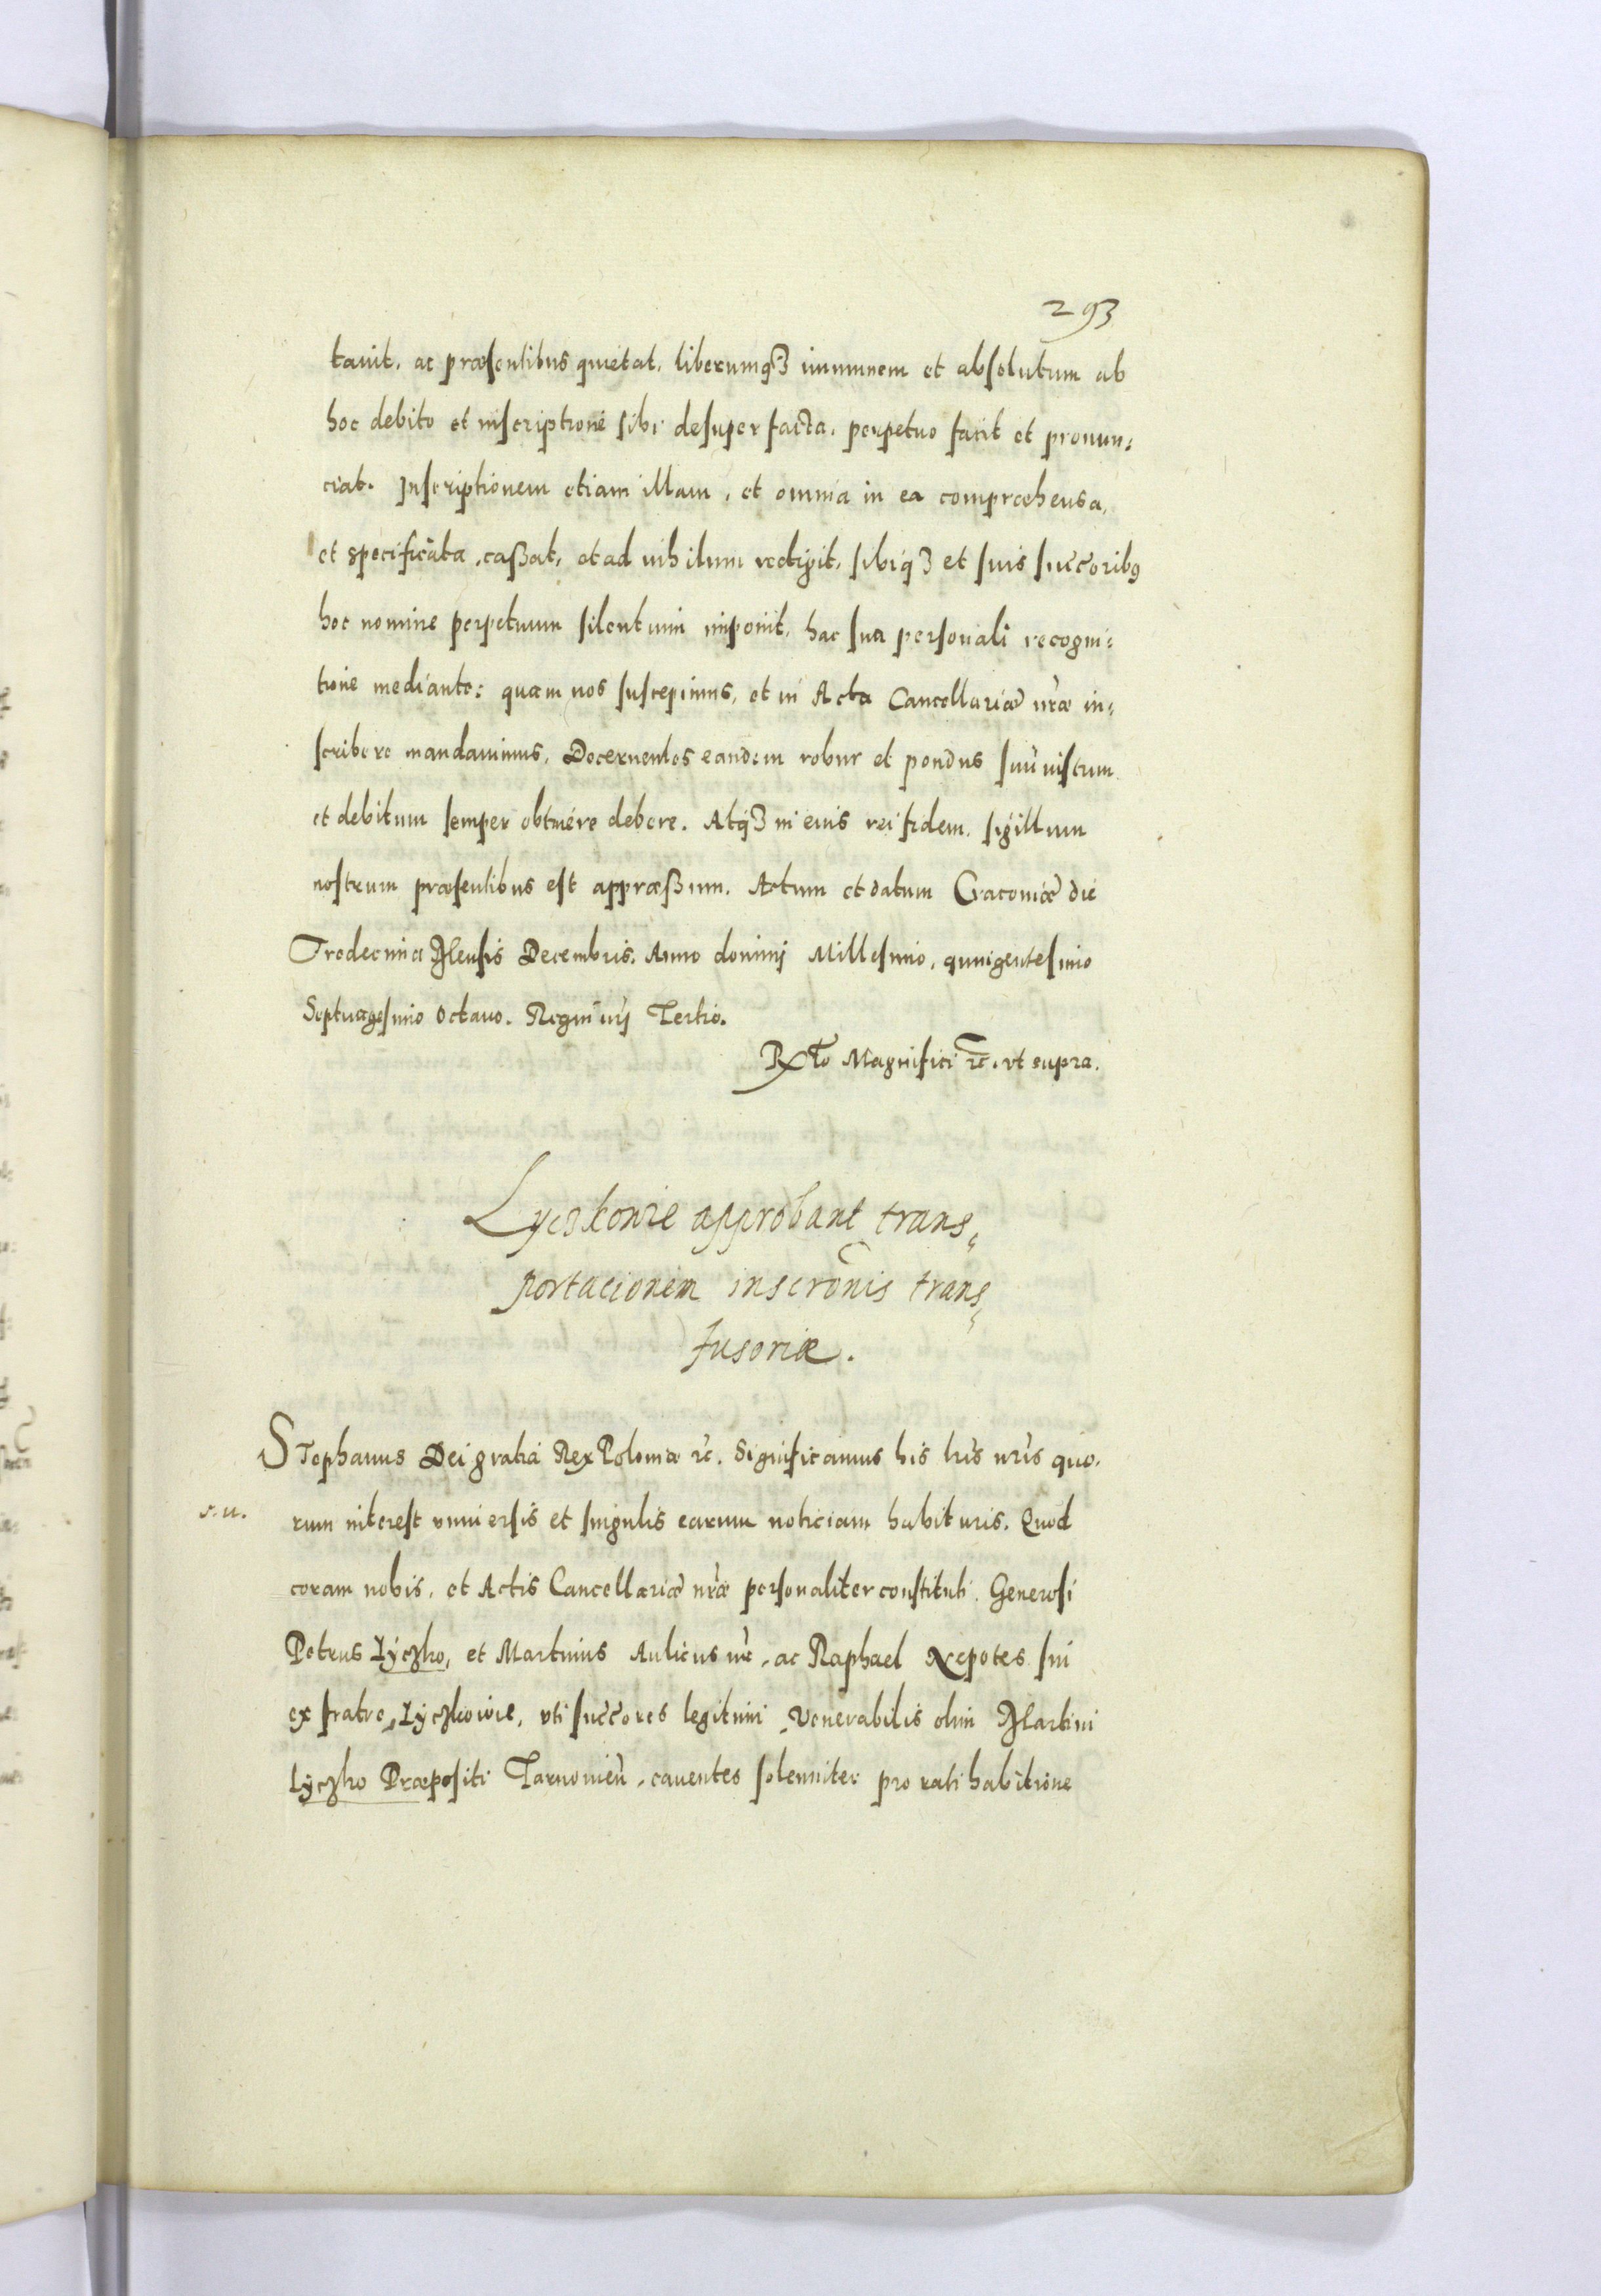 293
tauit, ac præsentibus quietat, liberumq3 immunem et absolutum ab
hoc debito et inscriptione sibi desuper facta, perpetuo facit et pronun:
ciat. Inscriptionem etiam illam, et omnia in ea compræhensa,
et specificata, cassat, et ad nihilum redigit, sibiq3 et suis succoribꝯ
hoc nomine perpetuum silentium imponit, hac sua personali recogni:
tione mediante: quam nos suscepimus, et in Acta Cancellariæ nræ in:
scribere mandauimus, Decernentes eandem robur et pondus suũ iustum
et debitum semper obtinere debere. Atq3 in eius rei fidem, sigillum
nostrum præsentibus est appræssum. Actum et datum Cracouiæ die
Tredecima Mensis Decembris. Anno domini Millesimo, quingentesimo
Septuagesimo octauo. Regni nrj Tertio.
Rxto Magnifici rc. vt supra.
Lyczkowie approbant trans,
portacionem inscronis trans,
fusoriæ.
STephanus Dei gratia Rex Poloniæ rc. Significamus his lris nris quo.
s. u.
rum interest vniuersis et singulis earum noticiam habituris. Quod
coram nobis, et Actis Cancellariæ nræ personaliter constituti. Generosi
Petrus Lyczko, et Martinus Aulicus nr, ac Raphael Nepotes sui
ex fratre, Lyczkowie, vti succores legitimi, Venerabilis olim Martini
Lyczko Præpositi Tarnouien, cauentes solenniter pro rati habitione